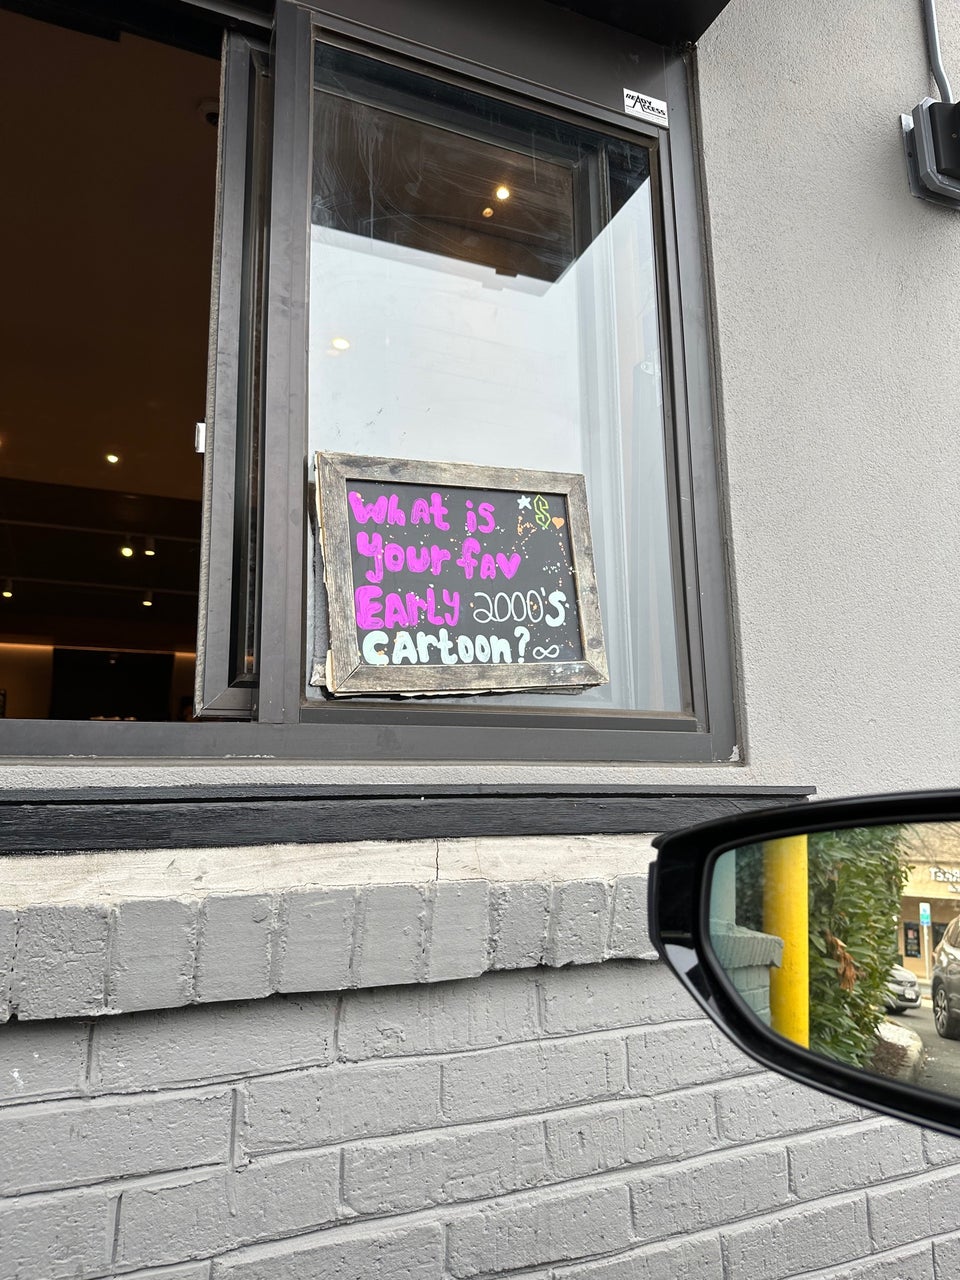 READY ACCESS
What is $
your fav
Early 2000's
Cartoon? ∞